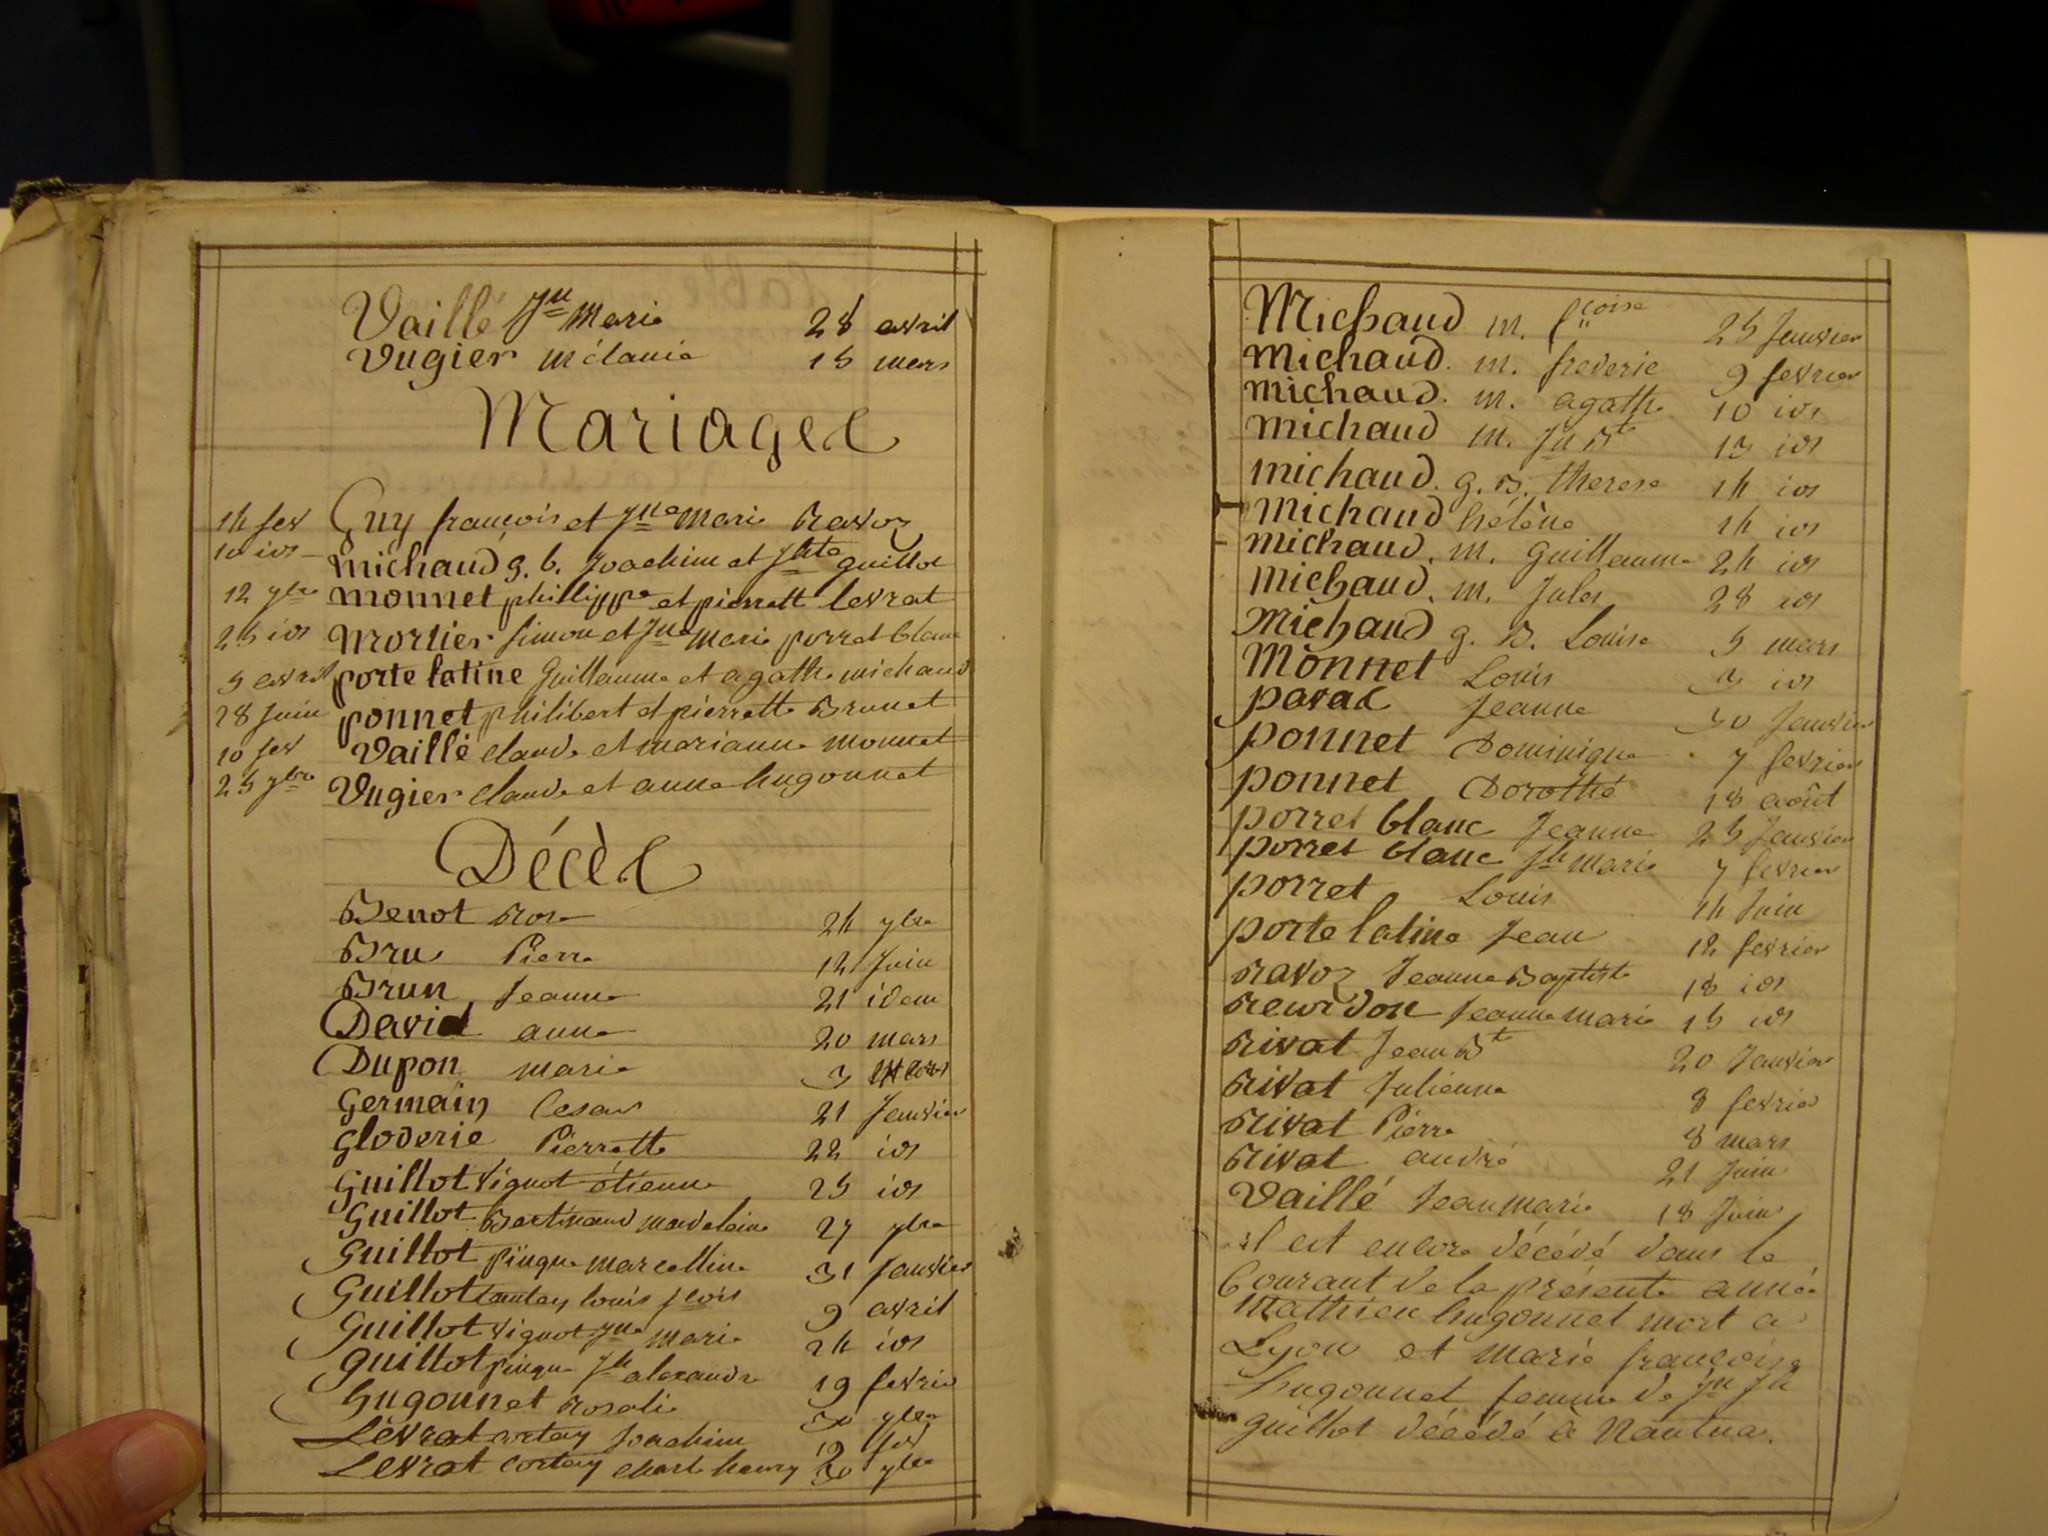 Vaillé Jn Marie 28 avril
Vugier mélanie 15 mars
Mariages
14 fev Guy françois et Jne Marie Ravoz
10 ids Michaud g. b. Joachim et Jhte guillot
12 ybre Monnet philippe et pierrette levrat
25 ids Mortier Simon et Jne Marie porret blanc
5 avril porte latine Guillaume et agathe michaud
28 Juin ponnet philibert et pierrette Brunet
10 fev Vaillé claude et marianne monnet
25 ybre Vugier claude et anne hugonnet
Décès
Benot Rose 24 ybre
Bru Pierre 12 Juin
Brun Jeanne 21 idem
David anne 20 mars
Dupon marie 3 mars
Germain Cesar 21 Janvier
Gloderie Pierrette 22 ids
Guillot Vignot étienne 25 ids
Guillot Bertinand madeleine 27 ybre
Guillot pingue marcelline 31 Janvier
Guillot tantay louis fçois 9 avril
Guillot Vignot Jne marie 24 ids
Guillot pingue Jh alexandre 19 fevrier
hugonnet Rosalie 30 ybre
Levrat cortay Joachim 12 fev
Levrat cortay charle henry 30 ybre
Michaud m. fçoise 25 Janvier
Michaud. m. frederic 9 fevrier
Michaud. m. agathe 10 ids
Michaud m. Jn Bte 13 ids
Michaud. g. B. therese 14 ids
Michaud hélène 14 ids
Michaud. m. Guillaume 24 ids
Michaud. m. Jules 28 ids
Michaud g. B. Louise 5 mars
Monnet Louis 3 ids
pavac Jeanne 30 Janvier
ponnet Dominique 7 fevrier
ponnet Dorothé 18 août
porret blanc Jeanne 25 Janvier
porret blanc Jh marie 7 fevrier
porret Louis 14 Juin
porte latine Jean 12 fevrier
Ravoz Jeanne Baptiste 18 ids
Reurdon Jeanne marie 15 ids
Rivat Jean Bte 20 Janvier
Rivat Julienne 8 fevrier
Rivat Pierre 8 mars
Rivat andré 21 Juin
Vaillé Jean marie 18 Juin
il est encore décédé dans le
Courant de la présente année
Mathieu hugonnet mort a
Lyon et marie françoise
hugonnet femme de Jn Jh
guillot décédé à Nantua.